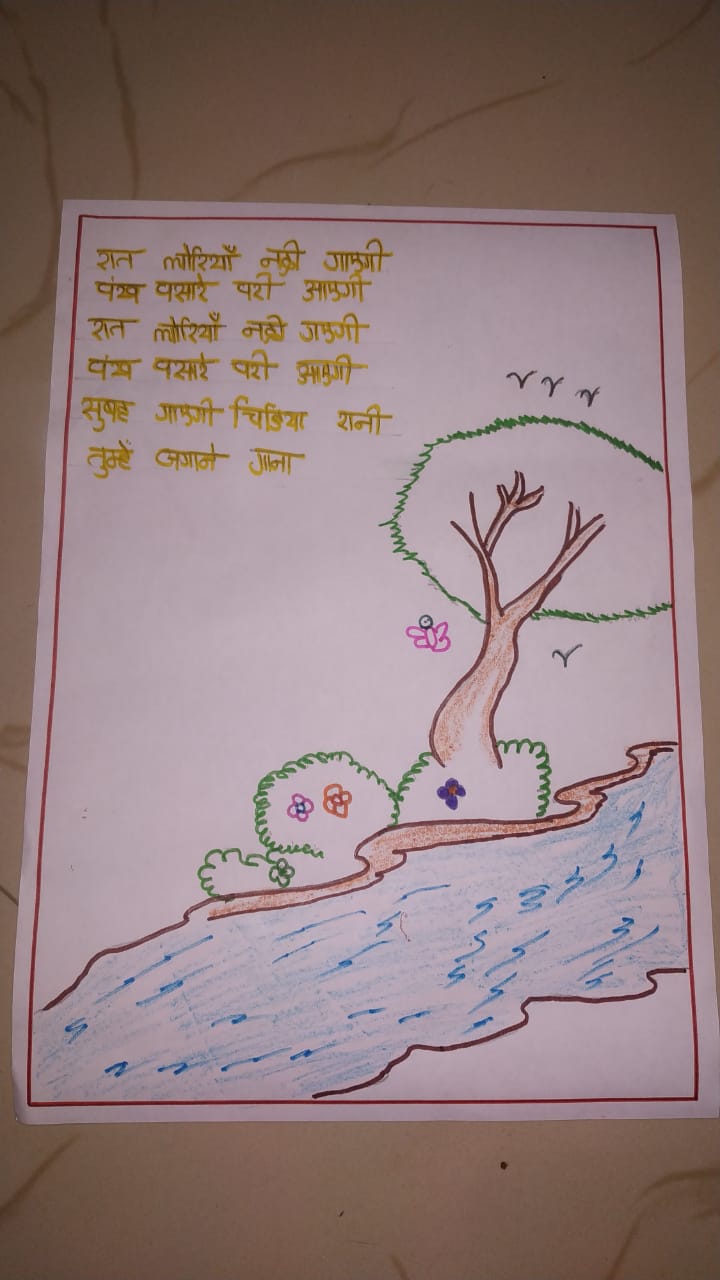 रात लोरियाँ नही गाएगी
पंख पसारे परी आएगी
रात लोरियाँ नही गाएगी
पंख पसारे परी आएगी
सुबह गाएगी चिडिया रानी
तुम्हें जगाने गाना